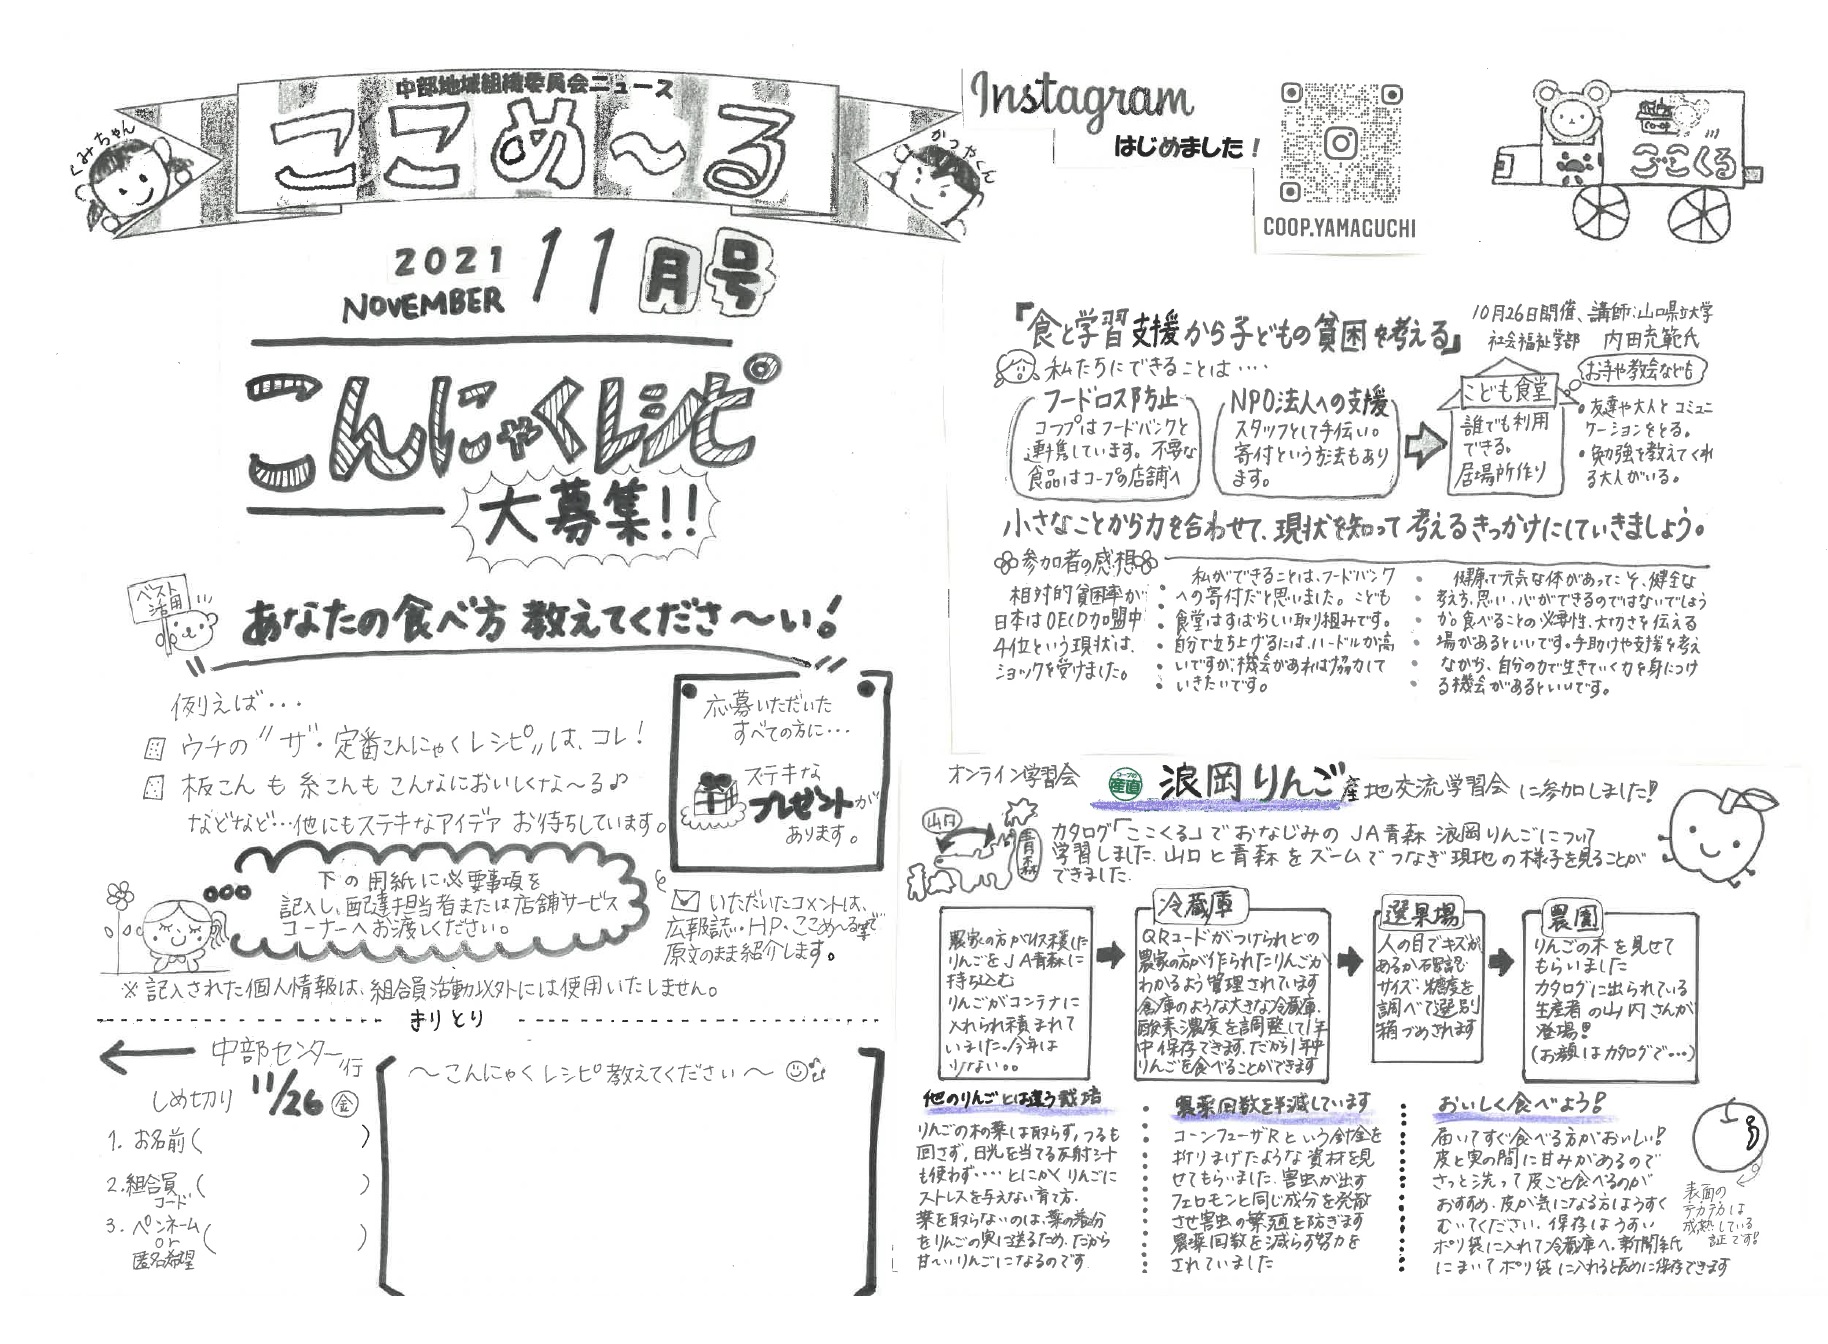 中部地域組織委員会ニュース
ここめ～る
くみちゃん
かつやくん
2021
NOVEMBER
11月号
こんにゃくレシピ
大募集!!
ベスト
活用
あなたの食べ方 教えてくださ～い!
例えば・・・
ウチの〝ザ・定番こんにゃくレシピ〟は、コレ!
板こん も 糸こんも こんなにおいしくな～る♪
などなど…他にもステキなアイデア お待ちしています。
応募いただいた
すべての方に…
ステキな
プレゼントが
あります。
下の用紙に必要事項を
記入し、配達担当者または店舗サービス
コーナーへお渡しください。
いただいたコメントは、
広報誌・HP・ここめ～る等で
原文のまま紹介します。
※記入された個人情報は、組合員活動以外には使用いたしません。
きりとり
中部センター行
しめ切り 11/26 金
1. お名前(　)
2.組合員
コード(　)
3. ペンネーム
or
匿名希望(　)
～こんにゃくレシピ教えてください～
Instagram
はじめました!
COOP.YAMAGUCHI
ここくる
『食と学習支援から子どもの貧困を考える』
10月26日開催、講師:山口県立大学
社会福祉学部 内田充範氏
私たちにできることは・・・・
フードロス防止
コープはフードバンクと
連携しています。不要な
食品はコープの店舗へ
NPO法人への支援
スタッフとして手伝い。
寄付という方法もあり
ます。
こども食堂
誰でも利用
できる。
居場所作り
お寺や教会なども
・友達や大人とコミュニ
ケーションをとる。
・勉強を教えてくれ
る大人がいる。
小さなことから力を合わせて、現状を知って考えるきっかけにしていきましょう。
参加者の感想
相対的貧困率が
日本はOECD加盟中
4位という現状は、
ショックを受けました。
私ができることは、フードバンク
への寄付だと思いました。こども
食堂はすばらしい取り組みです。
自分で立ち上げるには、ハードルが高
いですが、機会があれば協力して
いきたいです。
健康で元気な体があってこそ、健全な
考え方、思い、心ができるのではないでしょう
か。食べることの必要性、大切さを伝える
場があるといいです。手助けや支援を考え
ながら、自分の力で生きていく力を身につけ
る機会があるといいです。
オンライン学習会
コープの
産直
浪岡りんご産地交流学習会に参加しました!
山口
青森
カタログ「ここくる」でおなじみの JA青森 浪岡りんごについて
学習しました。山口と青森をズームでつなぎ現地の様子を見ることが
できました。
農家の方が収穫した
りんごをJA青森に
持ち込む
りんごがコンテナに
入れられ積まれて
いました。今年は
少ない。。
冷蔵庫
QRコードがつけられどの
農家の方が作られたりんごか
わかるよう管理されています
倉庫のような大きな冷蔵庫。
酸素濃度を調整して1年
中保存できます。だから1年中
りんごを食べることができます
選果場
人の目でキズが
あるか確認
サイズ・糖度を
調べて選別
箱づめされます
農園
りんごの木を見せて
もらいました
カタログに出られている
生産者の山内さんが
登場!!
(お顔はカタログで…)
他のりんごとは違う栽培
りんごの木の葉は取らず、つるも
回さず、日光を当てる反射シート
も使わず……とにかくりんごに
ストレスを与えない育て方。
葉を取らないのは、葉の養分
をりんごの実に送るため。だから
甘～いりんごになるのです
農薬回数を半減しています
コーンフューザRという針金を
折りまげたような資材を見
せてもらいました。害虫が出す
フェロモンと同じ成分を発散
させ害虫の繁殖を防ぎます
農薬回数を減らす努力を
されていました
おいしく食べよう!
届いてすぐ食べる方がおいしい!
皮と実の間に甘みがあるので
さっと洗って皮ごと食べるのが
おすすめ。皮が気になる方はうすく
むいてください。保存はうすい
ポリ袋に入れて冷蔵庫へ。新聞紙
にまいてポリ袋に入れると長めに保存できます
表面の
テカテカは
成熟している
証です!